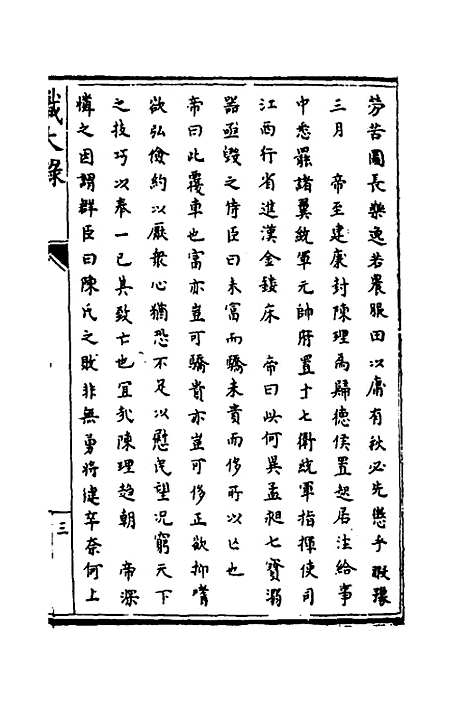 勞苦圖長樂逸若農服田以庸有秋必先懋乎畎
三月　帝至建康封陳理為歸德侯置起居注給事
中悉罷諸翼統軍元帥府置十七衛統軍指揮使司
江西行省進漢金鏤床　帝曰此何異孟昶七寶溺
器亟毀之侍臣曰未富而驕未貴而侈所以亡也
帝曰此覆車也富亦豈可驕貴亦豈可侈正欲抑嗜
欲弘儉約以厭衆心猶恐不足以慰民望況窮天下
之技巧以奉一己其致亡也宜矣陳理趋朝　帝深
憐之因謂群臣曰陳氏之敗非無勇將健卒奈何上
識大錄
三